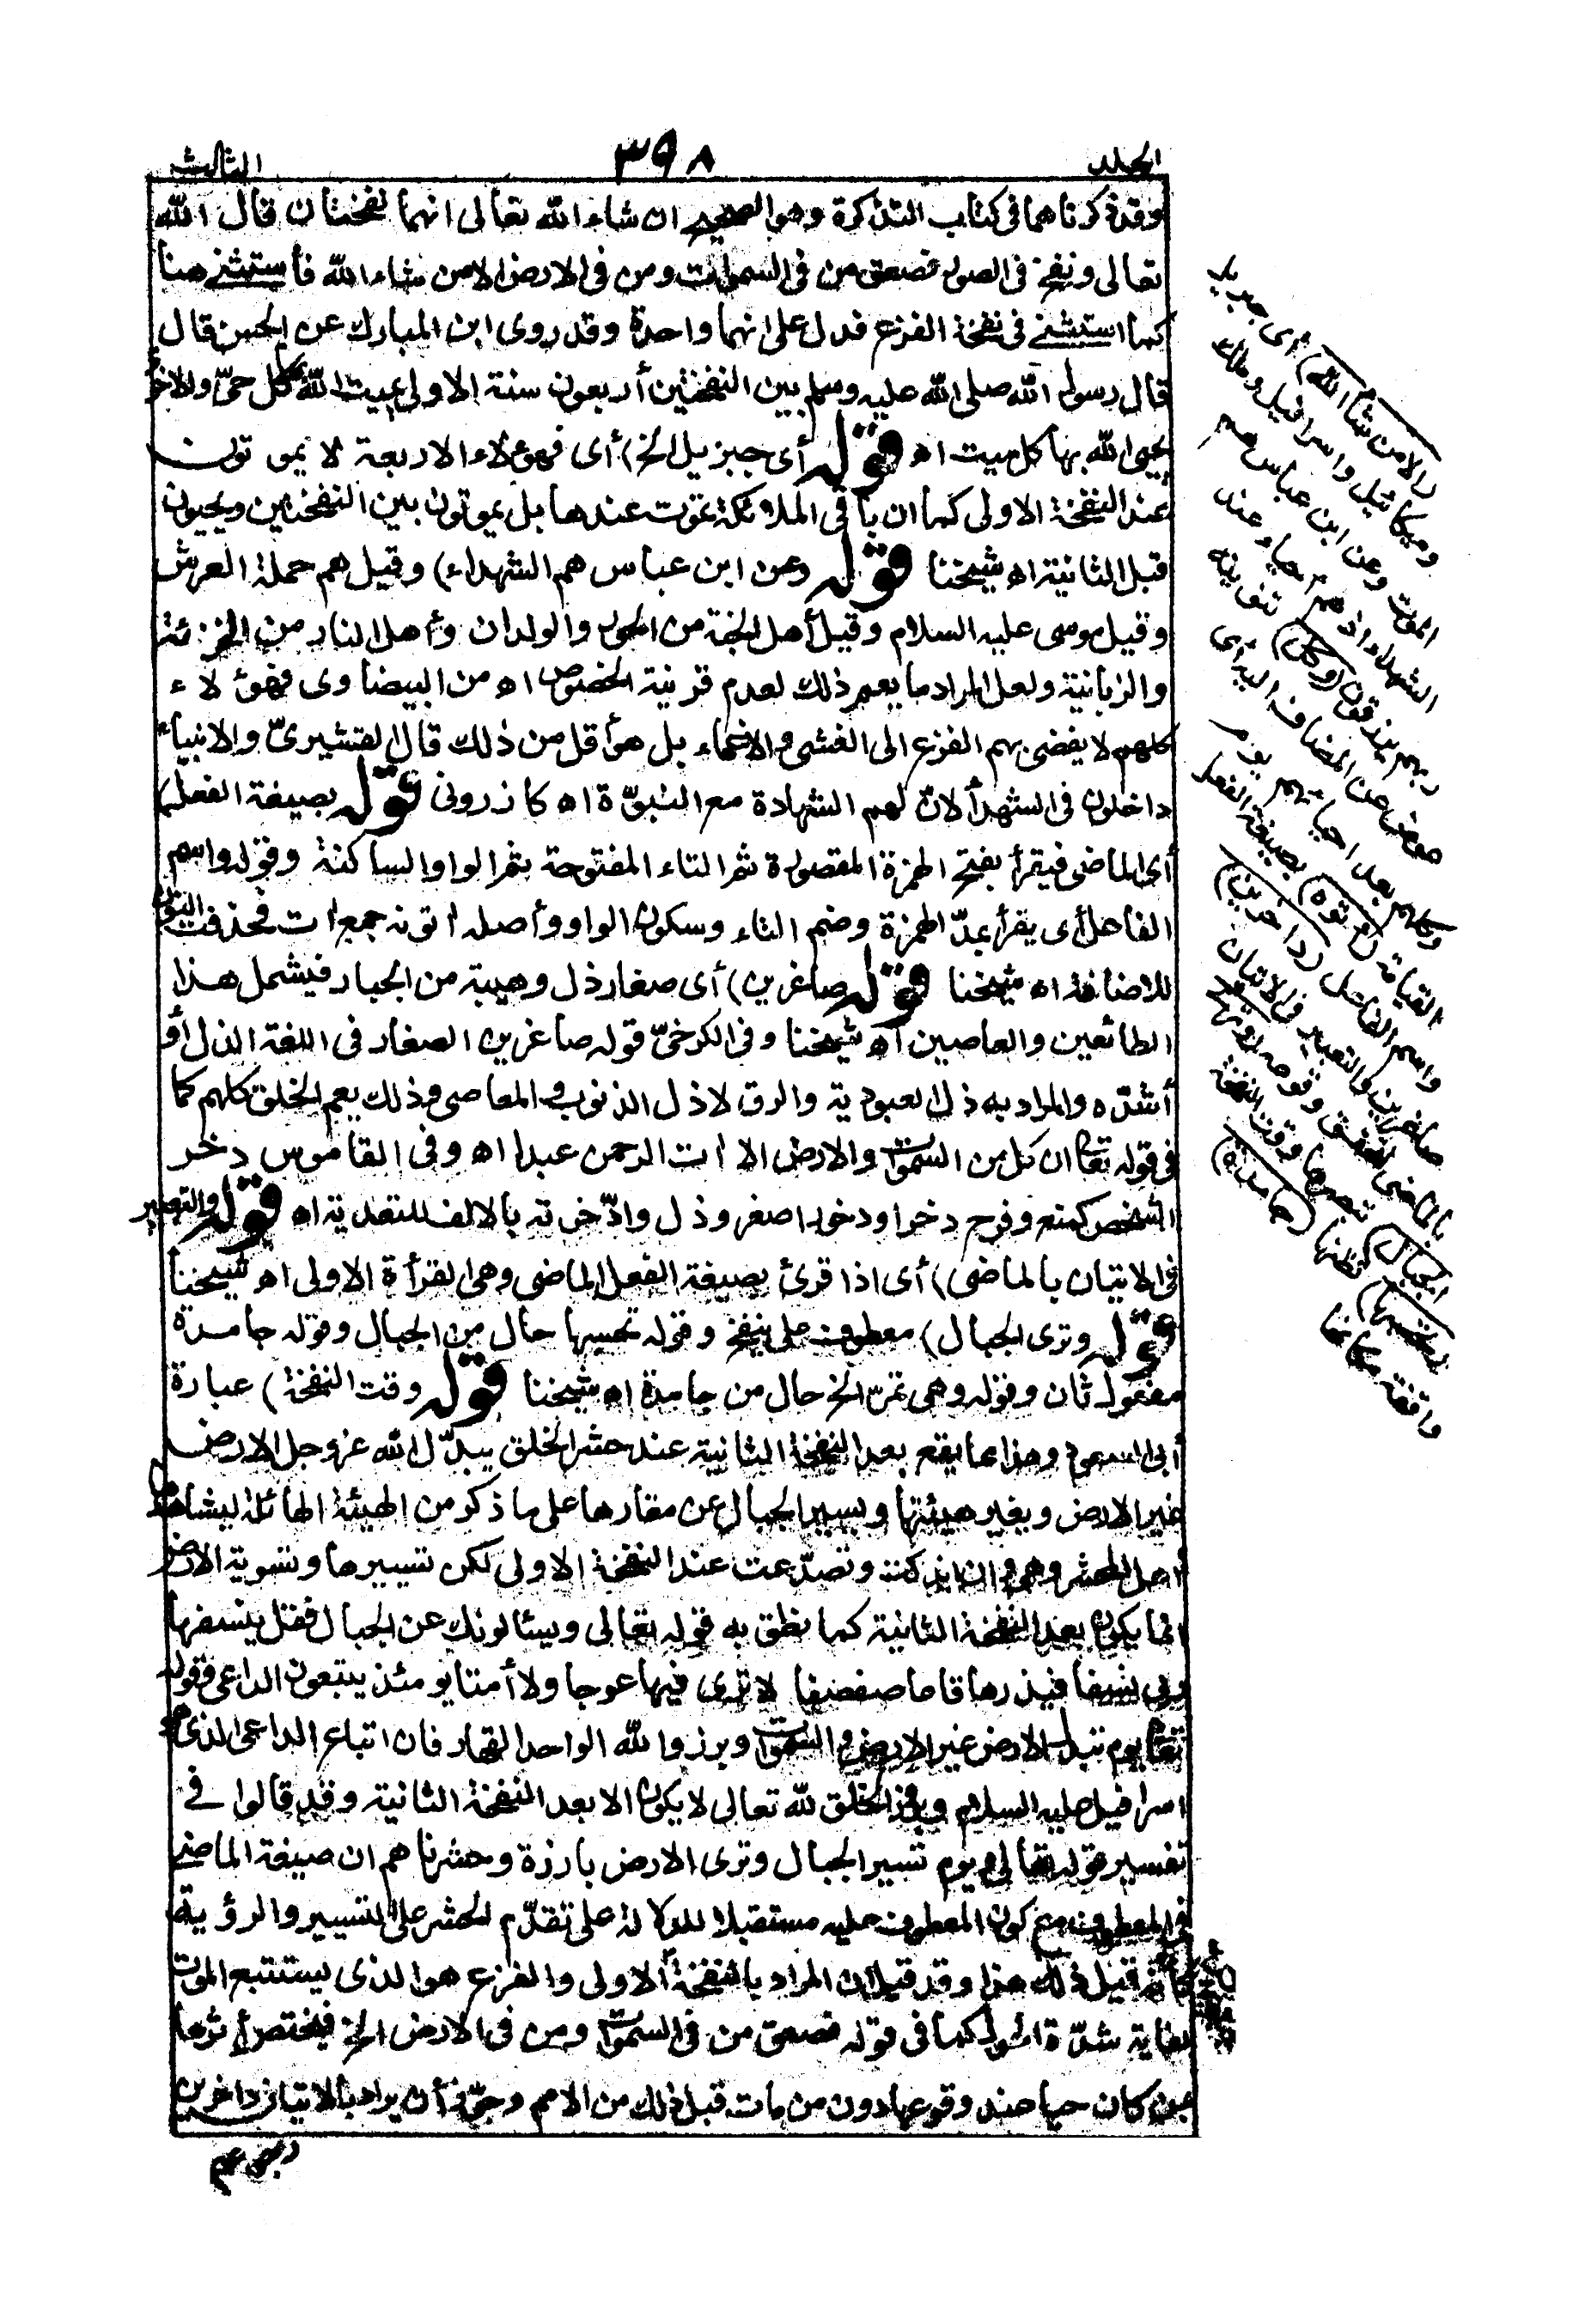 المجلد
٣٩٨
الثالث
وقد ذكرناهما فى كتاب التذكرة وهو الصحيح ان شاء الله تعالى انهما نفختان قال الله
تعالى ونفخ فى الصور فصعق من فى السموات ومن فى الارض الا من شاء الله فأستثنى هنا
كما استثنى فى نفخة الفزع فدل على انهما واحدة وقد روى ابن المبارك عن الحسن قال
قال رسول الله صلى الله عليه وسلم بين النفختين أربعون سنة الاولى يميت الله بها كل حىّ والاخرى
يحيى الله بها كل ميت اه قوله أى جبريل الخ) أى فهؤلاء الاربعة لا يموتون
عند النفخة الاولى كما ان باقى الملائكة تموت عندها بل يموتون بين النفختين ويحيون
قبل الثانية اه شيخنا قوله وعن ابن عباس هم الشهداء) وقيل هم حملة العرش
وقيل موسى عليه السلام وقيل أهل الجنة من الحور والولدان وأهل النار من الخزنة
والزبانية ولعل المراد ما يعم ذلك لعدم قرينة الخصوص اه من البيضاوى فهؤلاء
كلهم لا يفضى بهم الفزع الى الغشى والاغماء بل هو أقل من ذلك قال القشيرىّ والانبياء
داخلون فى الشهدأ لانّ لهم الشهادة مع النبوّة اه كازرونى قوله بصيغة الفعل)
أى الماضى فيقرأ بفتح الهمزة المقصورة ثم التاء المفتوحة ثم الواو الساكنة وقوله واسم
الفاعل أى يقرأ بمدّ الهمزة وضم التاء وسكون الواو وأصله اتونه جمع ات فحذفت النون
للاضافة اه شيخنا قوله صاغرين) أى صغار ذل وهيبة من الجبار فيشمل هذا
الطائعين والعاصين اه شيخنا وفى الكرخىّ قوله صاغرين الصغار فى اللغة الذل أو
أشدّه والمراد به ذل العبودية والرق لا ذل الذنوب والمعاصى وذلك يعم الخلق كلهم كما
فى قوله تعا ان كل من السموات والارض الا ات الرحمن عبدا اه وفى القاموس دخر
الشخص كمنع وفرح دخرا ودخورا صغر وذل وادّخرته بالالف للتعدية اه قوله والتعبير
فى الاتيان بالماضى) أى اذا قرئ بصيغة الفعل الماضى وهى القرأة الاولى اه شيخنا
قوله وترى الجبال) معطوف على ينفخ وقوله تحسبها حال من الجبال وقوله جامدة
مفعول ثان وقوله وهى تمرّ الخ حال من جامدة اه شيخنا قوله وقت النفخة) عبارة
أبى السعود وهذا مما يقع بعد النفخة الثانية عند حشر الخلق يبدّل الله عز وجل الارض
غير الارض ويغير هيئتها ويسير الجبال عن مقارها على ما ذكر من الهيئة الهائلة ليشاهدها
أهل المحشر وهى وان اندكت وتصدّعت عند النفخة الاولى لكن تسييرها وتسوية الارض
انما يكون بعد النفخة الثانية كما نطق به قوله تعالى ويسئالونك عن الجبال فقل ينسفها
ربى نسفا فيذرها قاعا صفصفا لا ترى فيها عوجا ولا أمتا يومئذ يتبعون الداعى وقوله
تعا يوم تبدل الارض غير الارض والسموات وبرزوا لله الواحد القهار فان اتباع الداعى الذى هو
اسرافيل عليه السلام وبروز الخلق لله تعالى لا يكون الا بعد النفخة الثانية وقد قالوا فى
تفسير قوله تعالى ويوم نسير الجبال وترى الارض بارزة وحشرناهم ان صيغة الماضى
فى المعطوف مع كون المعطوف عليه مستقبلا للدلالة على تقدّم الحشر على التسيير والرؤية
كأنه قيل ذلك هذا وقد قيل ان المراد بالنفخة الاولى والفزع هو الذى يستتبع الموت
لغاية شدّة الهول كما فى قوله فصعق من فى السموات ومن فى الارض الخ فيختص أثرها
بمن كان حيا عند وقوعها دون من مات قبل ذلك من الامم وجوّز أن يراد بالاتيان داخرين
(الا من شا الله) أى جبريل
وميكائيل واسرافيل وملك
الموت وعن ابن عباس هم
الشهداء اذ هم احياء عند
ربهم يرزقون (وكل) تنوينه
عوض عن المضاف اليه أى
وكلهم بعد احيائهم يوم
القيامة (اتوه) بصيغة الفعل
واسم الفاعل (داخرين)
صاغرين والتعبير فى الاتيان
بالماضى لتحقق وقوعه (وترى
الجبال) تبصرها وقت النفخة
(تحسبها) تظنها (جامدة)
واقفة مكانها